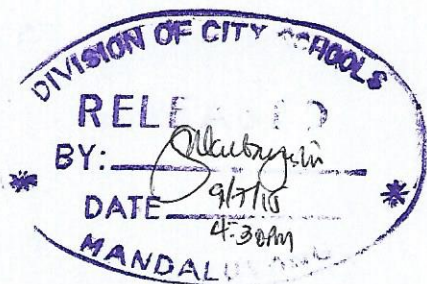 DIVISION OF CITY SCHOOLS
RELEASED
BY:
DATE 9/7/15
4:30PM
MANDALUYONG